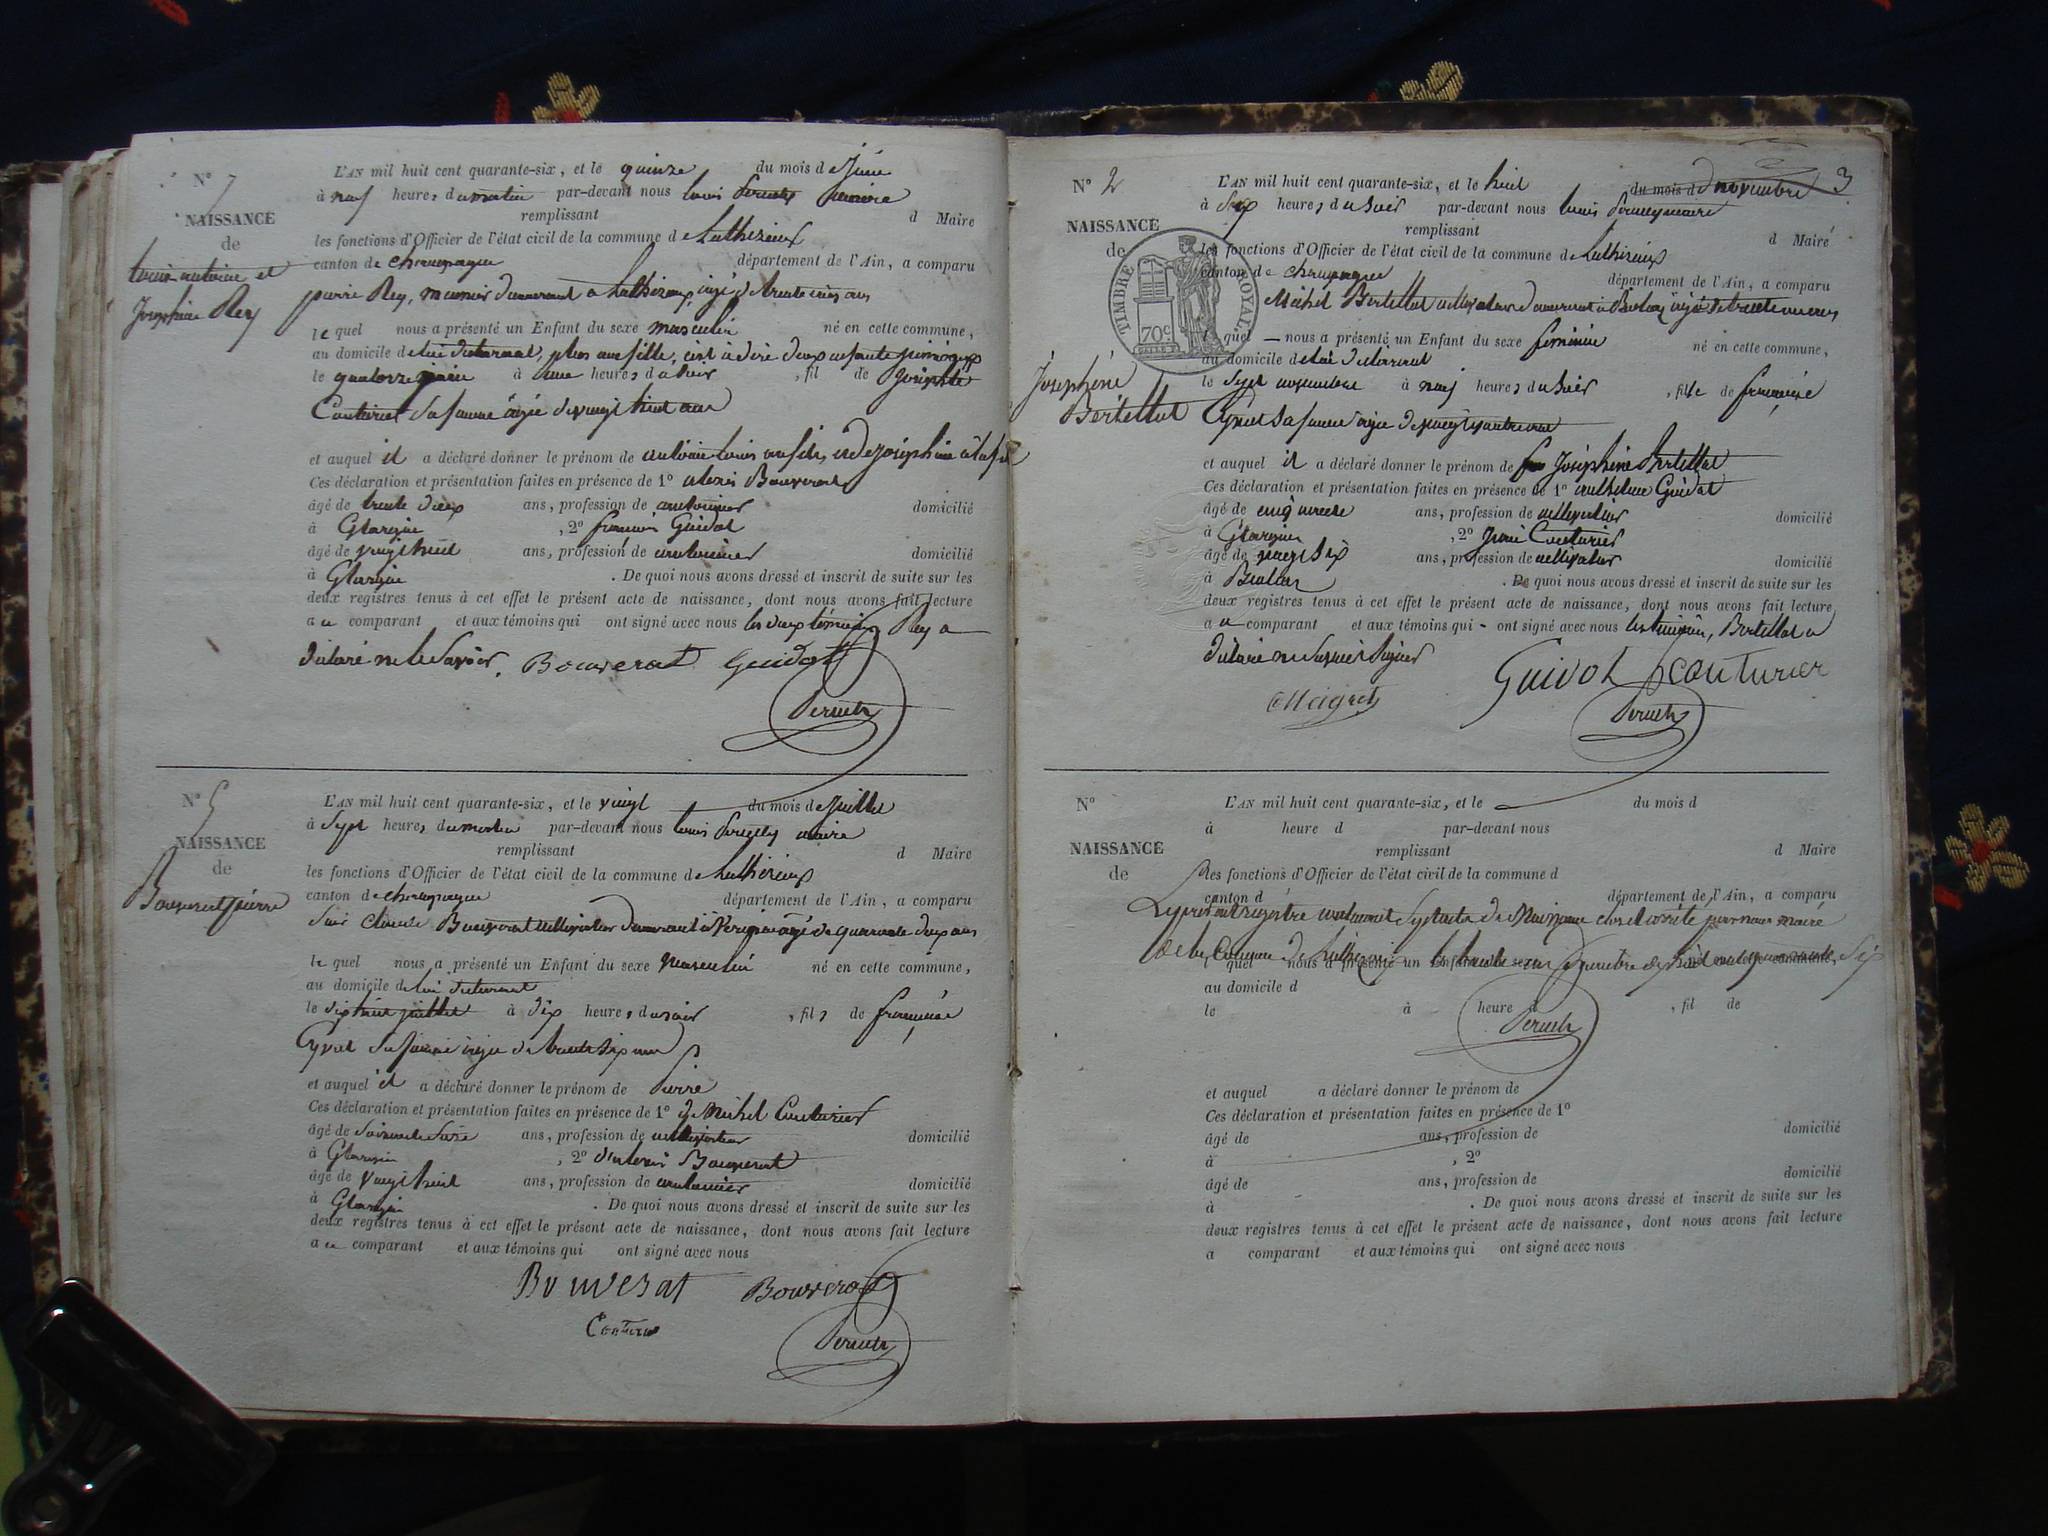 N°
NAISSANCE
de
Josephine Rey
L'AN mil huit cent quarante-six, et le quinze du mois de juin
à neuf heures du matin par-devant nous Louis
remplissant d Maire
les fonctions d'Officier de l'état civil de la commune de Luthezieux
canton de champagne département de l'Ain, a comparu
pierre Rey, meunier demeurant a Luthezieux, âgé de trente
le quel nous a présenté un Enfant du sexe masculin né en cette commune,
au domicile de lui déclarant, plus une fille, c'est à dire deux enfants
le quatorze juin à une heures du soir, fil de Josephte
Couturier sa femme âgée de vingt huit ans
et auquel il a déclaré donner le prénom de antoine Louis au fils, et de joséphine à la fille
Ces déclaration et présentation faites en présence de 1° alexis Bouverat
âgé de trente deux ans, profession de cantonnier domicilié
à Glargin, 2° francois Guidot
âgé de vingt huit ans, profession de cantonnier domicilié
à Glargin. De quoi nous avons dressé et inscrit de suite sur les
deux registres tenus à cet effet le présent acte de naissance, dont nous avons fait lecture
a ce comparant et aux témoins qui ont signé avec nous les deux témoins Rey a
déclaré ne le savoir. Bouverat Guidot
N° 5
NAISSANCE
de
Bouverat pierre
L'AN mil huit cent quarante-six, et le vingt du mois de juillet
à sept heures du matin par-devant nous Louis maire
remplissant d Maire
les fonctions d'Officier de l'état civil de la commune de Luthezieux
canton de champagne département de l'Ain, a comparu
claude Bouverat cultivateur demeurant à âgé de quarante deux ans
le quel nous a présenté un Enfant du sexe masculin né en cette commune,
au domicile de lui déclarant
le dix huit juillet à dix heures du soir, fils de françoise
Cyvet sa femme âgée de trente six ans
et auquel il a déclaré donner le prénom de Pierre
Ces déclaration et présentation faites en présence de 1° de Michel Couturier
âgé de ans, profession de cultivateur domicilié
à Glargin, 2° d'alexis Bouverat
âgé de vingt huit ans, profession de cantonnier domicilié
à Glargin. De quoi nous avons dressé et inscrit de suite sur les
deux registres tenus à cet effet le présent acte de naissance, dont nous avons fait lecture
a ce comparant et aux témoins qui ont signé avec nous
Bouverat Bouverat
3
N° 2
NAISSANCE
de
Joséphine
Bertellot
TIMBRE ROYAL
70c
L'AN mil huit cent quarante-six, et le huit du mois de novembre
à six heures du soir par-devant nous Louis maire
remplissant d Maire
les fonctions d'Officier de l'état civil de la commune de Luthezieux
canton de champagne département de l'Ain, a comparu
Michel Bertellot cultivateur demeurant à âgé de
le quel nous a présenté un Enfant du sexe féminin né en cette commune,
au domicile de lui déclarant
le sept novembre à neuf heures du soir, fille de françoise
Cyvet sa femme âgée de vingt quatre ans
et auquel il a déclaré donner le prénom de Joséphine Bertellot
Ces déclaration et présentation faites en présence de 1° anthelme Guidot
âgé de cinquante ans, profession de cultivateur domicilié
à Glargin, 2° Couturier
âgé de vingt six ans, profession de cultivateur domicilié
à. De quoi nous avons dressé et inscrit de suite sur les
deux registres tenus à cet effet le présent acte de naissance, dont nous avons fait lecture
a ce comparant et aux témoins qui - ont signé avec nous les témoins, Bertellot a
déclaré ne savoir signer
Guidot couturier
Maigret
N°
NAISSANCE
de
L'AN mil huit cent quarante-six, et le du mois d
à heure d par-devant nous
remplissant d Maire
les fonctions d'Officier de l'état civil de la commune d
canton d département de l'Ain, a comparu
Le présent registre contenant sept actes de Naissance clos et arrêté par nous maire
de la Commune de Luthezieux le trente un decembre dix huit cent quarante six
quel nous a présenté un Enfant du sexe né en cette commune,
au domicile d
le à heure d, fil de
et auquel a déclaré donner le prénom de
Ces déclaration et présentation faites en présence de 1°
âgé de ans, profession de domicilié
à, 2°
âgé de ans, profession de domicilié
à. De quoi nous avons dressé et inscrit de suite sur les
deux registres tenus à cet effet le présent acte de naissance, dont nous avons fait lecture
a comparant et aux témoins qui ont signé avec nous